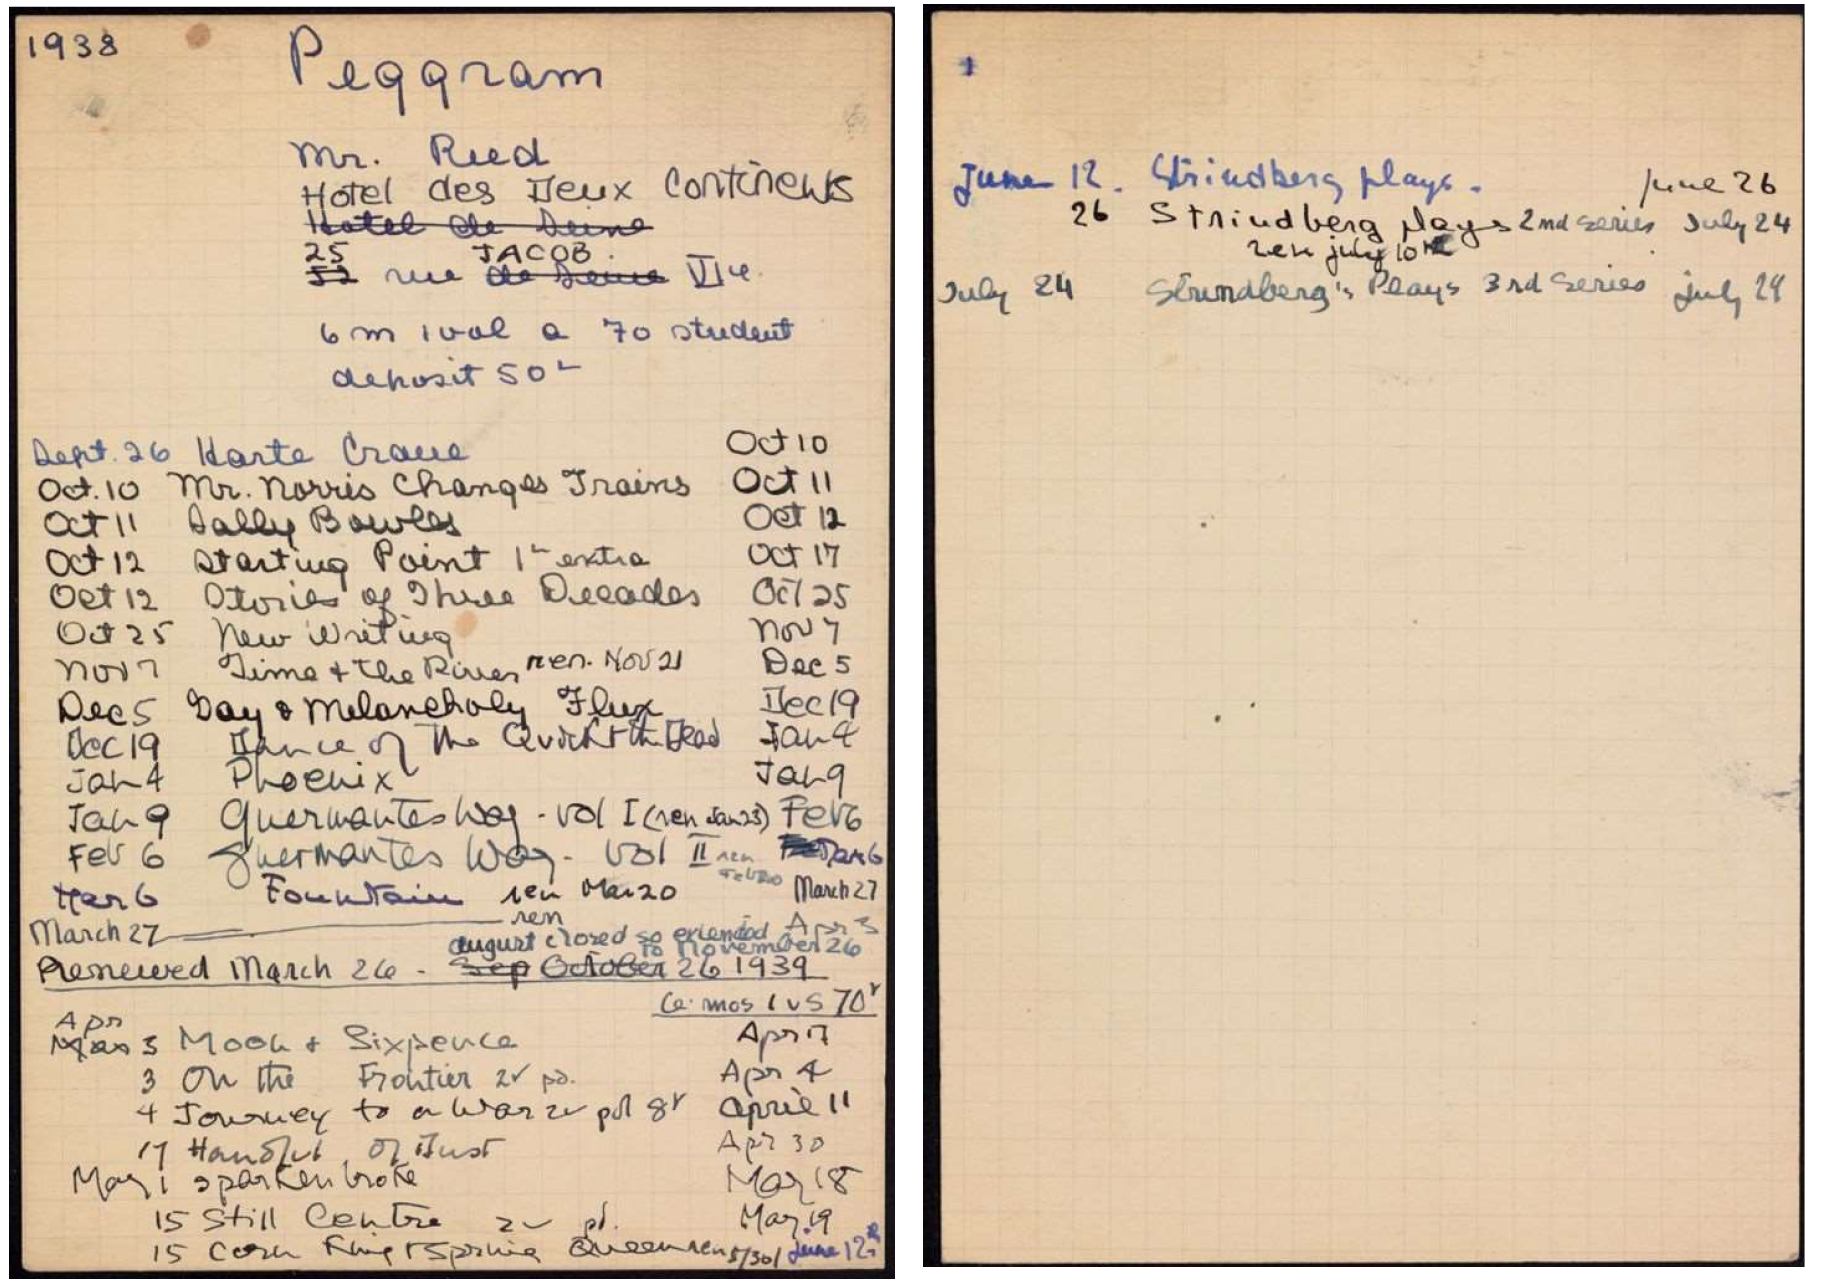 1938
Peggram
Mr. Reed
Hotel des Deux Continents
Hotel de Seine
25 JACOB.
52 rue de Seine VIe
6 m 1 vol a 70 student
deposit 50
Sept. 26 Harte Crane Oct 10
Oct. 10 Mr. Norris Changes Trains Oct 11
Oct 11 Sally Bowles Oct 12
Oct 12 Starting Point 1 extra Oct 17
Oct 12 Stories of Three Decades Oct 25
Oct 25 New Writing Nov 7
Nov 7 Time & the River ren. Nov 21 Dec 5
Dec 5 Gay & Melancholy Flux Dec 19
Dec 19 Dance of The Quick & the Dead Jan 4
Jan 4 Phoenix Jan 9
Jan 9 Guermantes Way - Vol I (ren Jan 23) Feb 6
Feb 6 Guermantes Way - Vol II ren Feb 20 Mar 6
Mar 6 Fountain ren Mar 20 March 27
March 27 ren Apr 3
august closed so extended
to November 26
Renewed March 26 - Sep October 26 1939
6 mos 1 vs 70
Apr
Mar 3 Moon & Sixpence Apr 17
3 On the Frontier 2 pd. Apr 4
4 Journey to a War 2 pd 8 April 11
17 Handful of Dust Apr 30
May 1 Sparkenbroke May 18
15 Still Centre 2 pd. May 19
15 Corn King & Spring Queen ren 5/30/ June 12
June 12. Strindberg plays. June 26
26 Strindberg plays 2nd series July 24
ren july 10th
July 24 Strindberg's Plays 3rd Series July 29